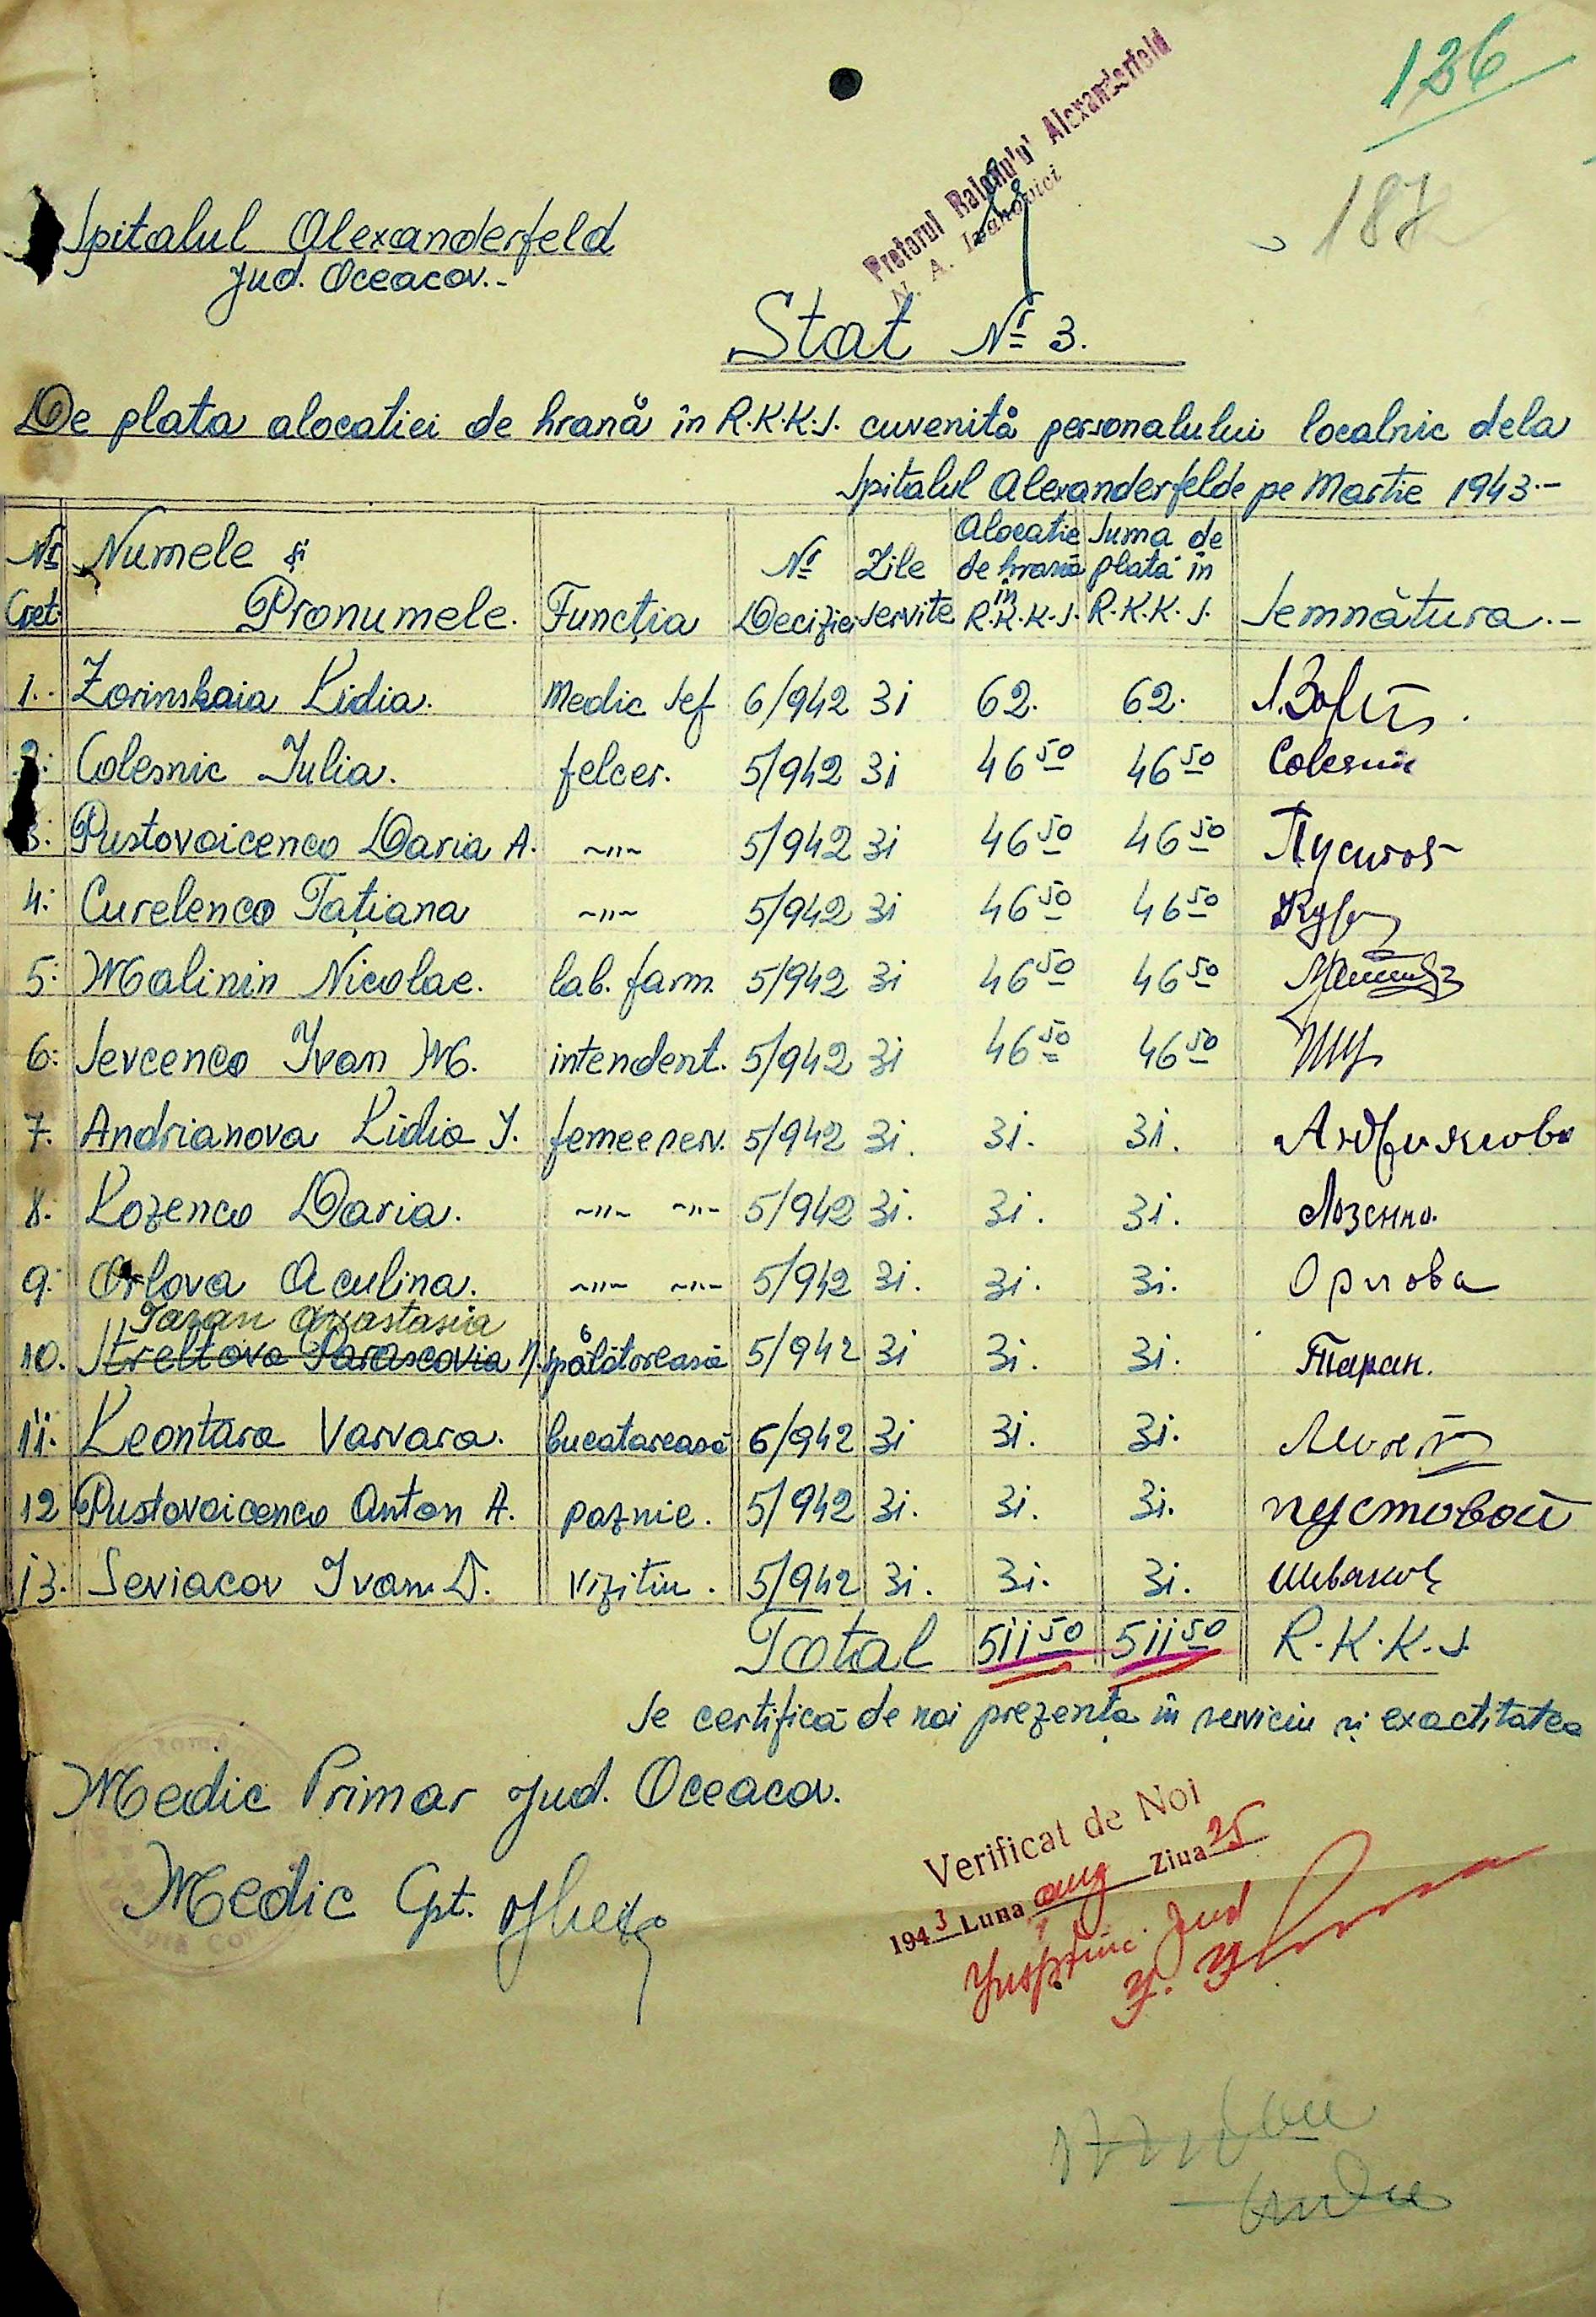 136
187
Pretorul Raionului Alexanderfeld
N. A. Ivanovici
Spitalul Alexanderfeld
Jud. Oceacov.-
Stat Nr 3.
De plata alocatiei de hrană în R.K.K.S. cuvenită personalului localnic dela
Spitalul Alexanderfelde pe Martie 1943.-
Nr Cret. Numele și Pronumele. Funcția Nr Deciziei Zile servite Alocatie de hrană în R.K.K.S. Suma de plată în R.K.K.S. Semnătura.-
1. Zorinskaia Lidia. Medic sef 6/942 31 62. 62.
2. Colesnic Iulia. felcer. 5/942 31 46 50 46 50 Colesnic
3. Pustovoicenco Daria A. -"- 5/942 31 46 50 46 50 Пустов
4. Curelenco Tațiana -"- 5/942 31 46 50 46 50
5. Malinin Nicolae. lab. farm. 5/942 31 46 50 46 50
6. Sevcenco Ivan M. intendent. 5/942 31 46 50 46 50
7. Andrianova Lidia I. femee serv. 5/942 31. 31. 31. Андриянова
8. Lozenco Daria. -"- -"- 5/942 31. 31. 31. Лозенко.
9. Orlova Aculina. -"- -"- 5/942 31. 31. 31. Орлова
Taran Anastasia
10. Streltova Parascovia spălătoreasă 5/942 31 31. 31. Таран.
11. Leontara Varvara. bucatareasă 6/942 31 31. 31.
12 Pustovoicenco Anton A. paznic. 5/942 31. 31. 31. пустовой
13. Seviacov Ivan D. vizitiu. 5/942 31. 31. 31. Шиваков
Total 511 50 511 50 R.K.K.S.
Se certifică de noi prezența în serviciu și exactitatea
Medic Primar Jud. Oceacov.
Medic Cpt.
Verificat de Noi
1943 Luna aug Ziua 25
Jud